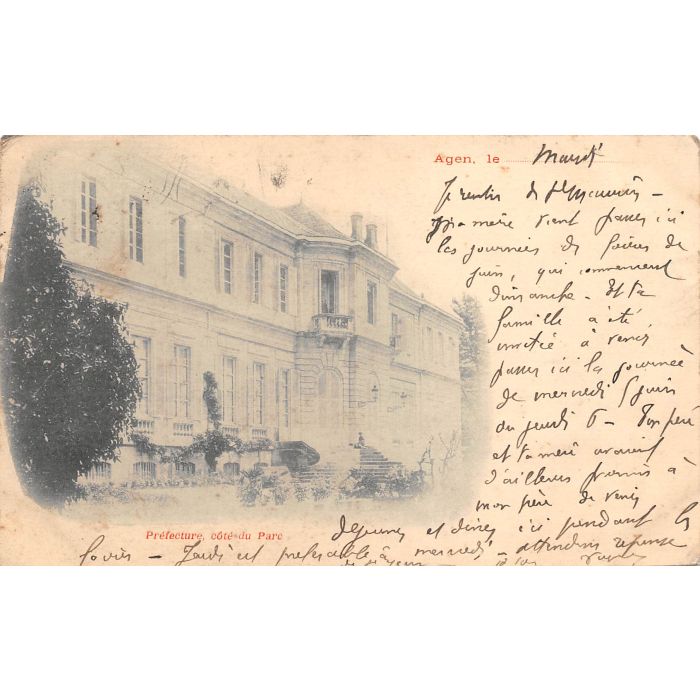 Agen, le Mardi
Je rentre de
ma mère vient passer ici
les journées de foires de
juin, qui commencent
dimanche - Et ta
famille a été
invitée à venir
passer ici la journée
de mercredi 5 juin
ou jeudi 6 - Ton père
et ta mère avaient
d'ailleurs promis à
mon père de venir
déjeuner et dîner ici pendant les
foires - Jeudi est préférable à mercredi - attendons réponse
Préfecture, côté du Parc